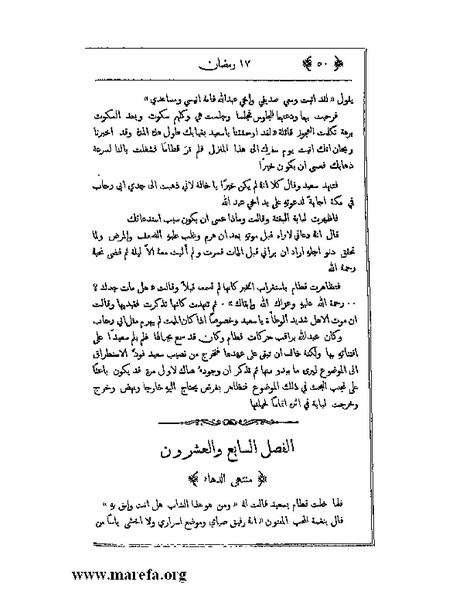 ﴿ ٥٠ ﴾ ١٧ رمضان
يقول « لقد اتيت ومعي صديقي واخي عبدالله فانه انيسي ومساعدي »
فرحبت بهما ودعتهما للجلوس فجلسا وجلست هي وكلهم سكوت وبعد السكوت
برهة تكلمت العجوز قائلة « لقد اوحشتنا ياسعيد بغيابك طول هذه المدة وقد اخبرنا
ريحان انك اتيت يوم سفرك الى هذا المنزل فلم تر قطاما فشغلت بالنا لسرعة
ذهابك فعسى ان يكون خيرًا
فتنهد سعيد وقال كلا انه لم يكن خيرًا يا خالة لاني ذهبت الى جدي ابي رحاب
في مكة اجابة لدعوته على يد اخي عبد الله
فاظهرت لبابة البغتة وقالت وماذا عسى ان يكون سبب استدعائك
قال انه دعاني لاراه قبل موته بعد ان هرم وتغلب عليه الضعف والمرض ولما
تحقق دنو اجله اراد ان يراني قبل الممات فسرت ولم ألبث معه الاّ ليلة ثم قضى نحبه
رحمة الله
فتظاهرت قطام باستغراب الخبر كانها لم تسمعه قبلاً وقالت « هل مات جدك لا
٠٠ رحمة الله عليه وعزاك الله وابقاك » ٠ ثم تنهدت كانها تذكرت فقيديها وقالت
ان موت الاهل شديد الوطأة يا سعيد وخصوصًا اذا كان الميت لم يهرم مثل ابي رحاب
وكان عبدالله يراقب حركات قطام وكان قد سمع بجمالها فلم يلم سعيدًا على
افتتانه بها ولكنه خاف ان تبقى على عهدها فتخرج من نصيب سعيد فودّ الاستطراق
الى الموضوع ليرى ما يبدو منها ثم تذكر ان وجوده هناك لاول مرة قد يكون باعثًا
على تجنب البحث في ذلك الموضوع فتظاهر بغرض يحتاج اليه خارجا ونهض وخرج
وخرجت لبابة في اثره اتمامًا لحيلتها
الفصل السابع والعشرون
﴿ منتهى الدهاء ﴾
فلما خلت قطام بسعيد قالت له « ومن هو هذا الشاب هل انت واثق به »
قال بنغمة المحب المفتون « انه رفيق صباي وموضع اسراري ولا اخشى باسًا من
www.marefa.org